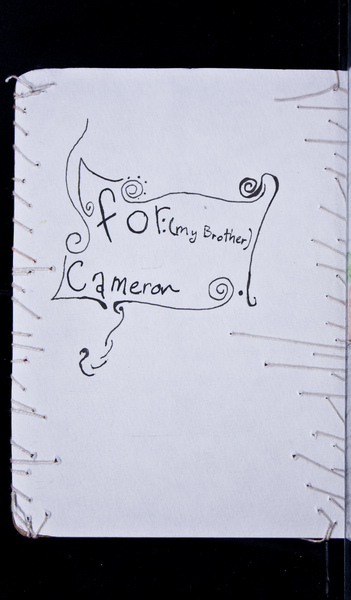 for: (my Brother)
Cameron